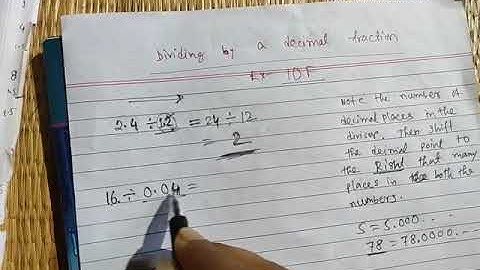 Dividing by a decimal fraction
Ex- 10F
2.4 ÷ 1.2 = 24 ÷ 12
= 2
16. ÷ 0.04 =
Note the number of
decimal places in the
divisor. Then shift
the decimal point to
the Right that many
places in both the
numbers.
5 = 5.000...
78 = 78.0000...